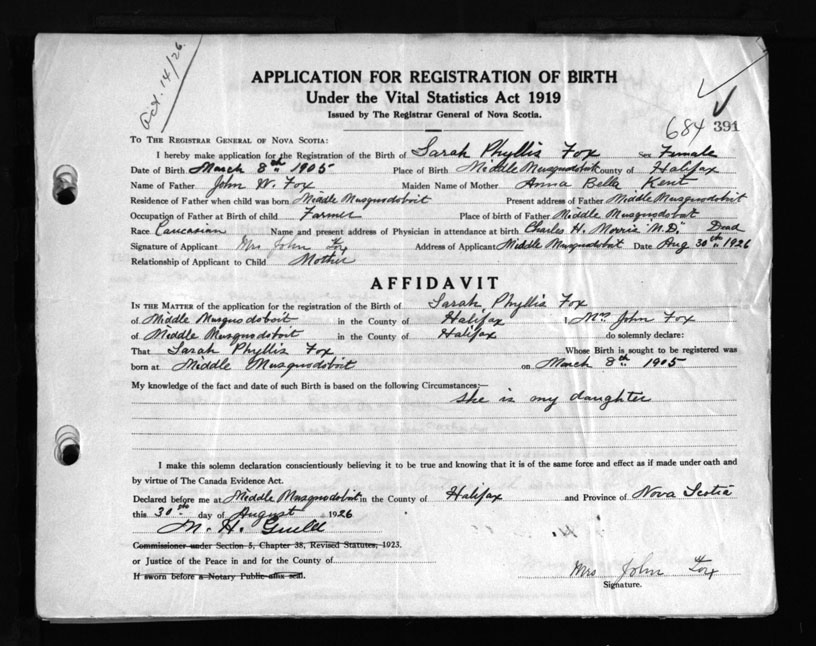 Oct. 14/26.
APPLICATION FOR REGISTRATION OF BIRTH
Under the Vital Statistics Act 1919
Issued by The Registrar General of Nova Scotia.
684 391
To The Registrar General of Nova Scotia:
I hereby make application for the Registration of the Birth of Sarah Phyllis Fox Sex Female
Date of Birth March 8th 1905 Place of Birth Middle Musquodoboit County of Halifax
Name of Father John W. Fox Maiden Name of Mother Anna Bella Kent
Residence of Father when child was born Middle Musquodoboit Present address of Father Middle Musquodoboit
Occupation of Father at Birth of child Farmer Place of birth of Father Middle Musquodoboit
Race Caucasian Name and present address of Physician in attendance at birth Charles H. Morris "M.D." Dead
Signature of Applicant Mrs John W Fox Address of Applicant Middle Musquodoboit Date Aug 30th 1926
Relationship of Applicant to Child Mother
AFFIDAVIT
In the Matter of the application for the registration of the Birth of Sarah Phyllis Fox
of Middle Musquodoboit in the County of Halifax I Mrs John Fox
of Middle Musquodoboit in the County of Halifax do solemnly declare:
That Sarah Phyllis Fox Whose Birth is sought to be registered was
born at Middle Musquodoboit on March 8th 1905
My knowledge of the fact and date of such Birth is based on the following Circumstances:—
she is my daughter
I make this solemn declaration conscientiously believing it to be true and knowing that it is of the same force and effect as if made under oath and
by virtue of The Canada Evidence Act.
Declared before me at Middle Musquodoboit in the County of Halifax and Province of Nova Scotia
this 30th day of August 1926
M. H. Guild
Commissioner under Section 5, Chapter 38, Revised Statutes, 1923.
or Justice of the Peace in and for the County of
If sworn before a Notary Public affix seal.
Mrs John W Fox
Signature.